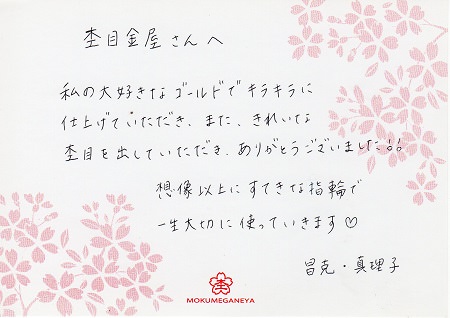 杢目金屋さんへ
私の大好きなゴールドでキラキラに
仕上げていただき、また、きれいな
杢目を出していただき、ありがとうございました!!
想像以上にすてきな指輪で
一生大切に使っていきます♡
昌克・真理子
MOKUMEGANEYA